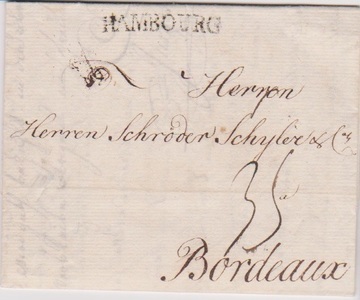 HAMBOURG
Herren
Herren Schröder Schÿler & Co
Bordeaux